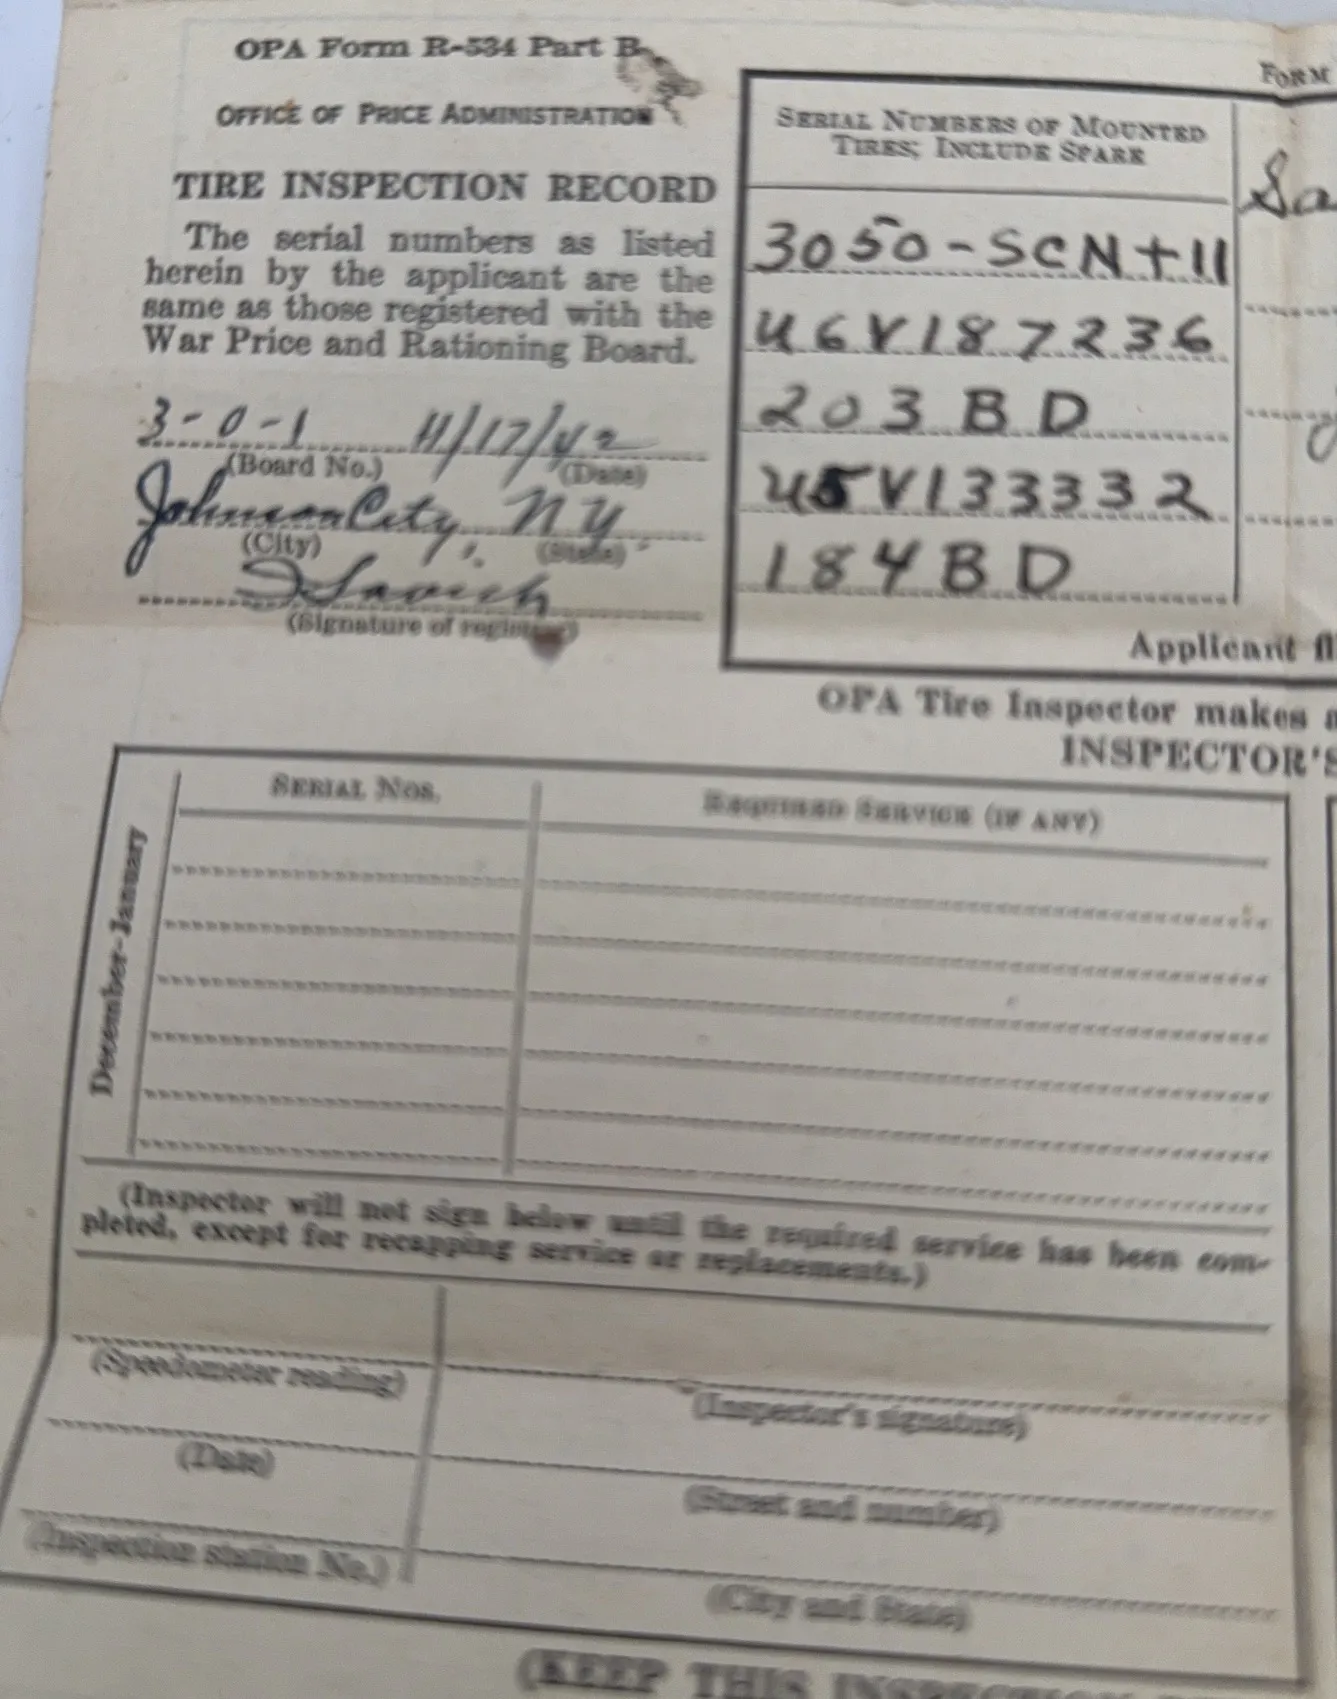 OPA Form R-534 Part B
OFFICE OF PRICE ADMINISTRATION
TIRE INSPECTION RECORD
The serial numbers as listed
herein by the applicant are the
same as those registered with the
War Price and Rationing Board.
3-0-1 11/17/42
(Board No.) (Date)
Johnson City, NY
(City) (State)
(Signature of registrar)
FORM
SERIAL NUMBERS OF MOUNTED
TIRES; INCLUDE SPARE
3050-SCN+11
U6V187236
203BD
U5V133332
184BD
Applicant
OPA Tire Inspector makes
INSPECTOR'S
December-January
SERIAL NOS.
REQUIRED SERVICE (IF ANY)
(Inspector will not sign below until the required service has been com-
pleted, except for recapping service or replacements.)
(Speedometer reading)
(Inspector's signature)
(Date)
(Street and number)
(Inspection station No.)
(City and State)
(KEEP THIS